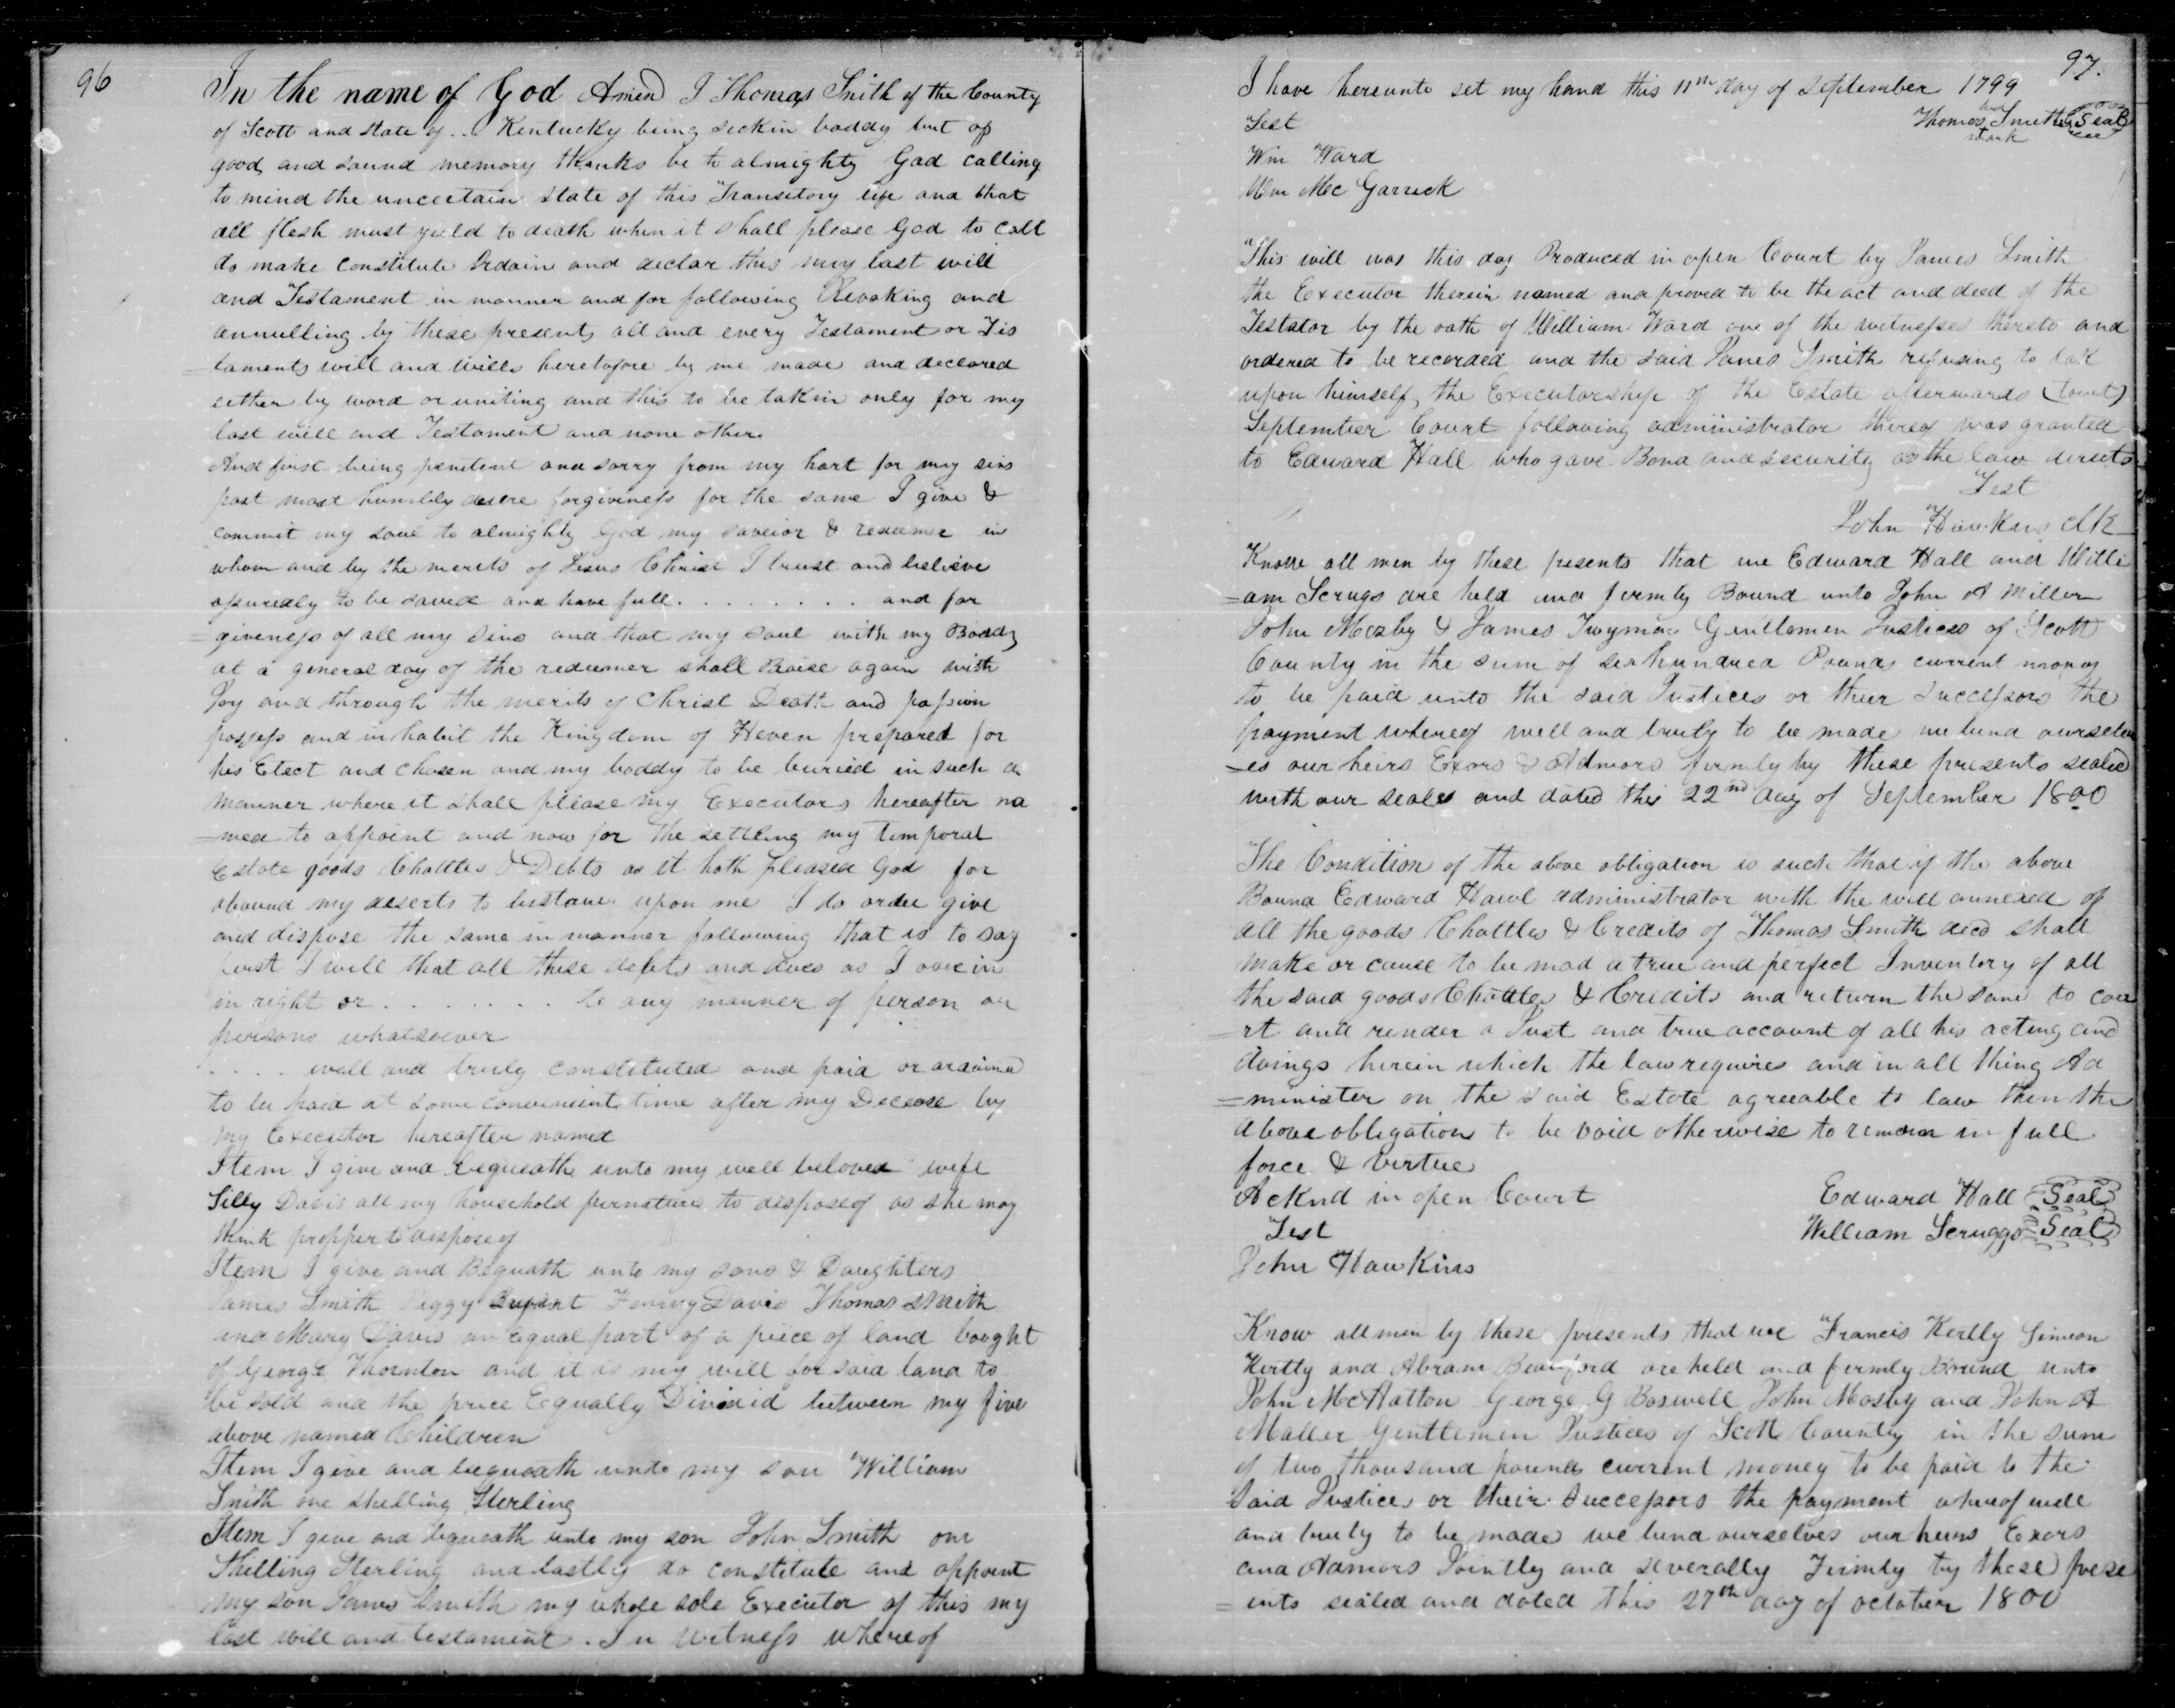 96
In the name of God Amen I Thomas Smith of the County
of Scott and state of .. Kentucky being sick in boddy but of
good and sound memory thanks be to almighty God calling
to mind the uncertain state of this Transitory life and that
all flesh must yeild to death when it shall please God to call
do make constitute Ordain and declar this my last will
and Testament in manner and for following Revoking and
annulling by these present all and every Testament or Tis
=taments will and wills heretofore by me made and declared
either by word or writing and this to be takin only for my
last will and Testament and none other
And first being penitent and sorry from my hart for my sins
past most humbly desire forgiveness for the same I give &
commit my soul to almighty God my saveior & redeemer in
whom and by the merits of Jesus Christ I trust and believe
assuredly to be saved and have full . . . . . . . . and for
=giveness of all my sins and that my soul with my Boddy
at a general day of the redeemer shall Raise again with
Joy and through the merits of Christ Death and passion
possess and inhabit the Kingdom of Heven prepared for
his Elect and chosen and my boddy to be buried in such a
manner where it shall please my Executors hereafter na
=med to appoint and now for the settling my temporal
Estate goods Chattles & Debts as it hath pleased God for
abound my deserts to bestow upon me I do order give
and dispose the same in manner following that is to say
first I will that all these debts and dues as I owe in
in right or . . . . . . . to any manner of person or
persons whatsoever
. . . . well and truly constituted and paid or ordained
to be paid at some convenient time after my Decease by
my Executor hereafter named
Item I give and bequeath unto my well beloved wife
Silly Davis all my household furnature to dispose of as she may
think propper to dispose of
Item I give and Bequath unto my sons & Daughters
James Smith Peggy Bryant Fenny Davis Thomas Smith
and Mary Davis an equal part of a piece of land bought
of George Thornton and it is my will for said land to
be sold and the price Equally Divivid between my five
above named Children
Item I give and bequeath unto my son William
Smith one shelling Sterling
Item I give and bequeath unto my son John Smith one
Shelling Sterling and lastly do constitute and appoint
my son James Smith my whole sole Executor of this my
last will and testament. In witness whereof
97.
I have hereunto set my hand this 11th day of September 1799
Test
Thomas his mark Smith Seal
Wm Ward
Wm McGarrick
This will was this day Produced in open Court by James Smith
the Executor therein named and proved to be the act and deed of the
Testator by the oath of William Ward one of the witnesses thereto and
ordered to be recorded and the said James Smith refusing to tak
upon himself the Executorship of the Estate afterwards (towit)
September Court following administrator thereof was granted
to Edward Hall who gave Bond and security as the law directs
Test
John Hawkins Clk
Know all men by these pesents that we Edward Hall and Willi
=am Scrugs are held and firmly Bound unto John A Miller
John Mozby & James Twyman Gentlemen Justices of Scott
County in the sum of six hundred Pounds current money
to be paid unto the said Justices or their successors the
payment whereof well and truly to be made we bind ourselv
=es our heirs Exors & Admors firmly by these presents sealed
with our seales and dated this 22nd day of September 1800
The Condition of the above obligation is such that if the above
Bound Edward Hawl administrator with the will annexed of
all the goods Chattles & Credits of Thomas Smith decd shall
make or cause to be mad a true and perfect Inventory of all
the said goods Chattles & Credits and return the same to cou
=rt and render a Just and true account of all his acting and
doings herein which the law requires and in all thing Ad
=minister on the said Estate agreeable to law then the
above obligation to be void otherwise to remain in full
force & virtue
Acknd in open Court
Edward Hall Seal
Test
William Scruggs Seal
John Hawkins
Know all men by these presents that we Francis Kertly Simeon
Kertly and Abram Beauford are held and firmly Bound unto
John McHatton George G Boswell John Mosby and John A
Maller Gentlemen Justices of Scott County in the sum
of two thousand pounds current money to be paid to the
Said Justices or their Successors the payment whereof well
and truly to be made we bind ourselves our heirs Exors
and Admors Jointly and severally Firmly by these prese
=ents sealed and dated this 27th day of october 1800